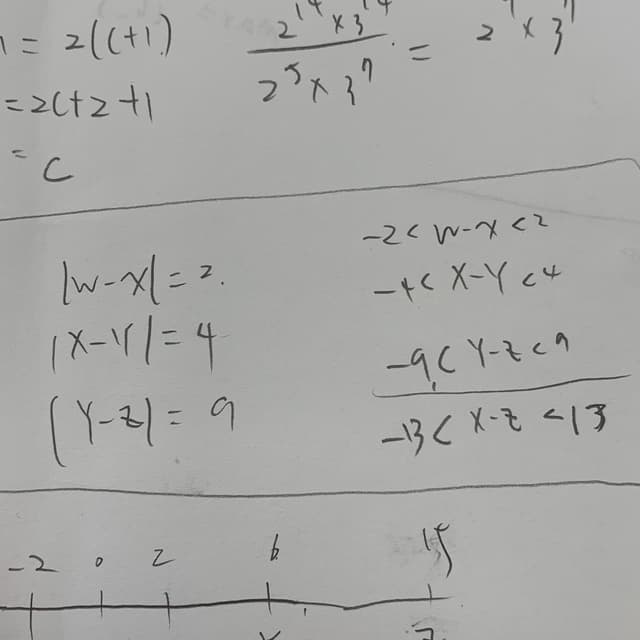 1 = 2(c+1)
= 2c+2+1
= c
2^14 × 3^14 / 2^5 × 3^7 = 2^9 × 3^7
|w-x| = 2.
|x-y| = 4
|y-z| = 9
-2 < w-x < 2
-4 < x-y < 4
-9 < y-z < 9
-13 < x-z < 13
-2 0 2 6 15